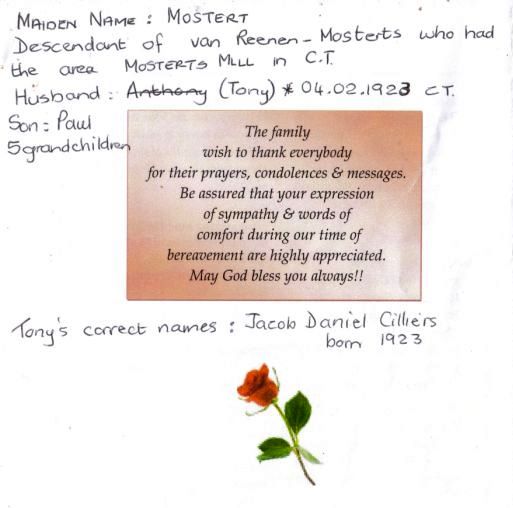 Maiden Name : Mostert
Descendant of van Reenen - Mosterts who had
the area Mosterts Mill in C.T.
Husband : Anthony (Tony) * 04.02.1923 C.T.
Son : Paul
5 grandchildren
The family
wish to thank everybody
for their prayers, condolences & messages.
Be assured that your expression
of sympathy & words of
comfort during our time of
bereavement are highly appreciated.
May God bless you always!!
Tony's correct names : Jacob Daniel Cilliers
born 1923